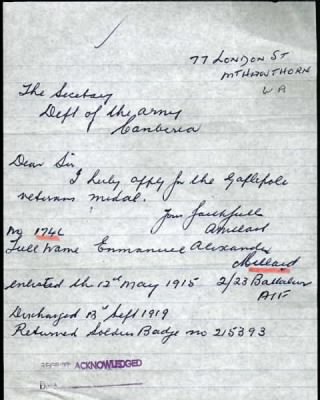 77 LONDON ST
MT HAWTHORN
W A
The Secetary
Dept of the army
Canberra
Dear Sir
I herby apply for the Gallipole
veterans medal.
Your faithfull
AMillard
No 1746
Full Name Emmanuel Alexander
Millard
enlisted the 12th May 1915 2/23 Battalion
AIF
Discharged 13th Sept 1919
Returned Soldier Badge no 215393
ACKNOWLEDGED